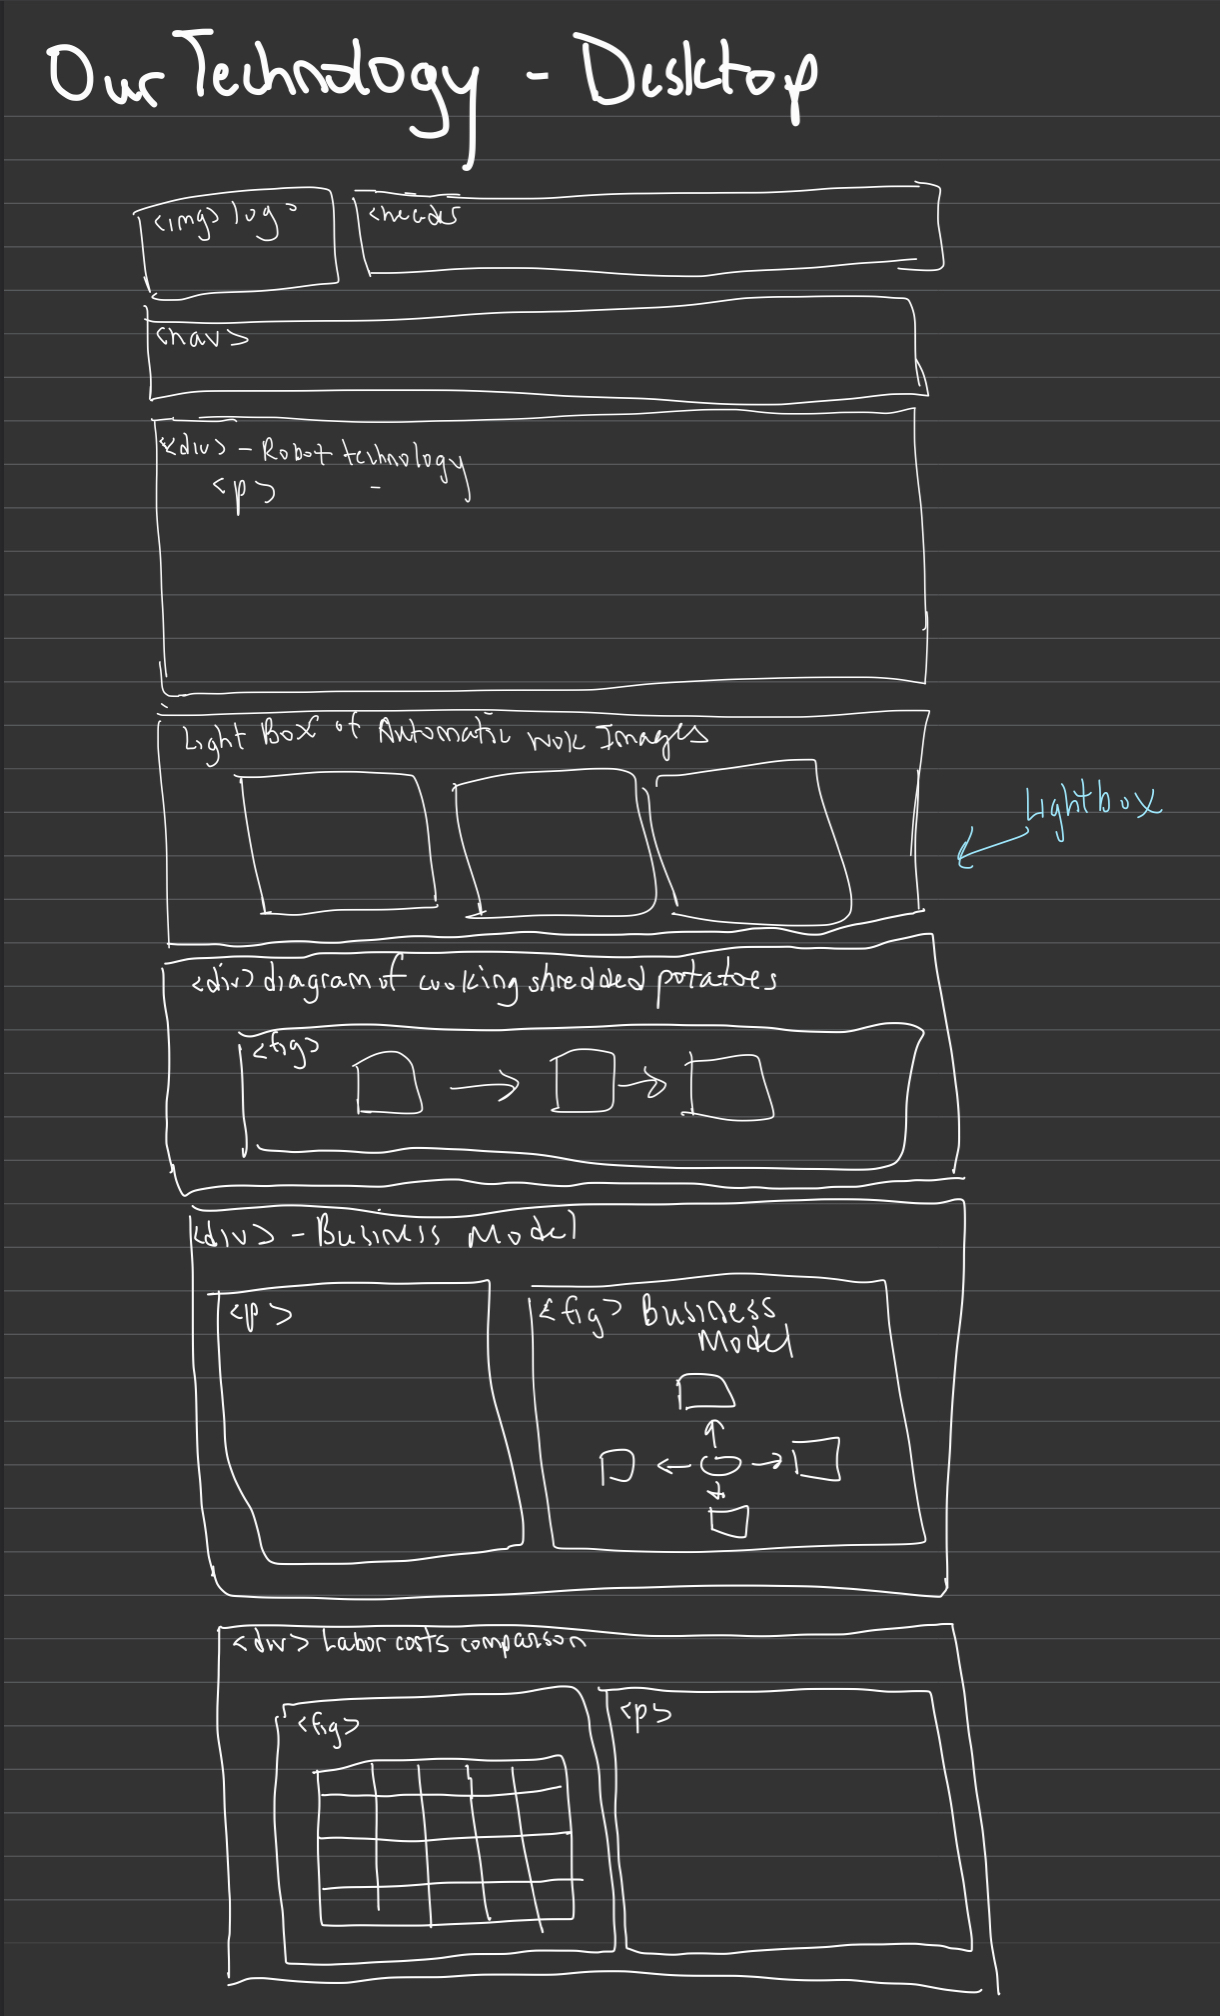 Our Technology - Desktop
<img> logo
<header
<nav>
<div> - Robot technology
<p> -
Light Box of Automatic Wok Images
Lightbox
<div> diagram of cooking shredded potatoes
<fig>
<div> - Business Model
<p>
<fig> Business
Model
<div> Labor costs comparison
<fig>
<p>